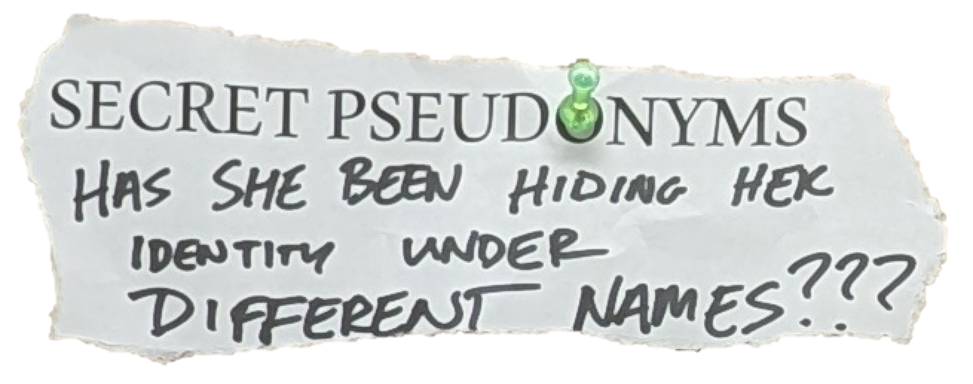 SECRET PSEUDONYMS
HAS SHE BEEN HIDING HER
IDENTITY UNDER
DIFFERENT NAMES???